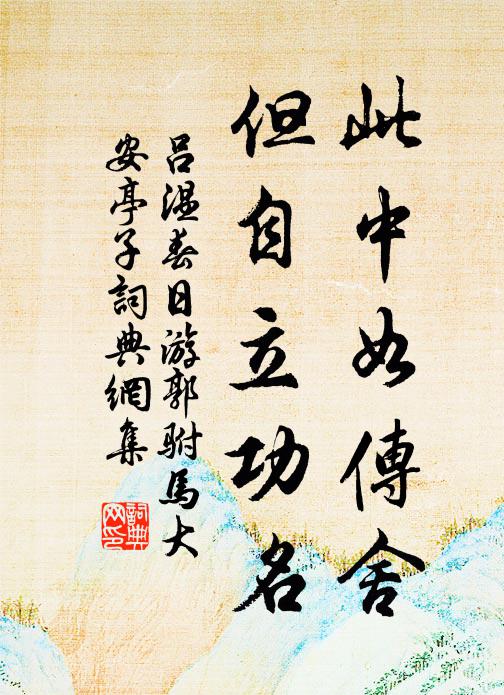 此中如傳舍
但自立功名
吕溫春日游郭駙馬大
安亭子詞典網集
詞典
网印